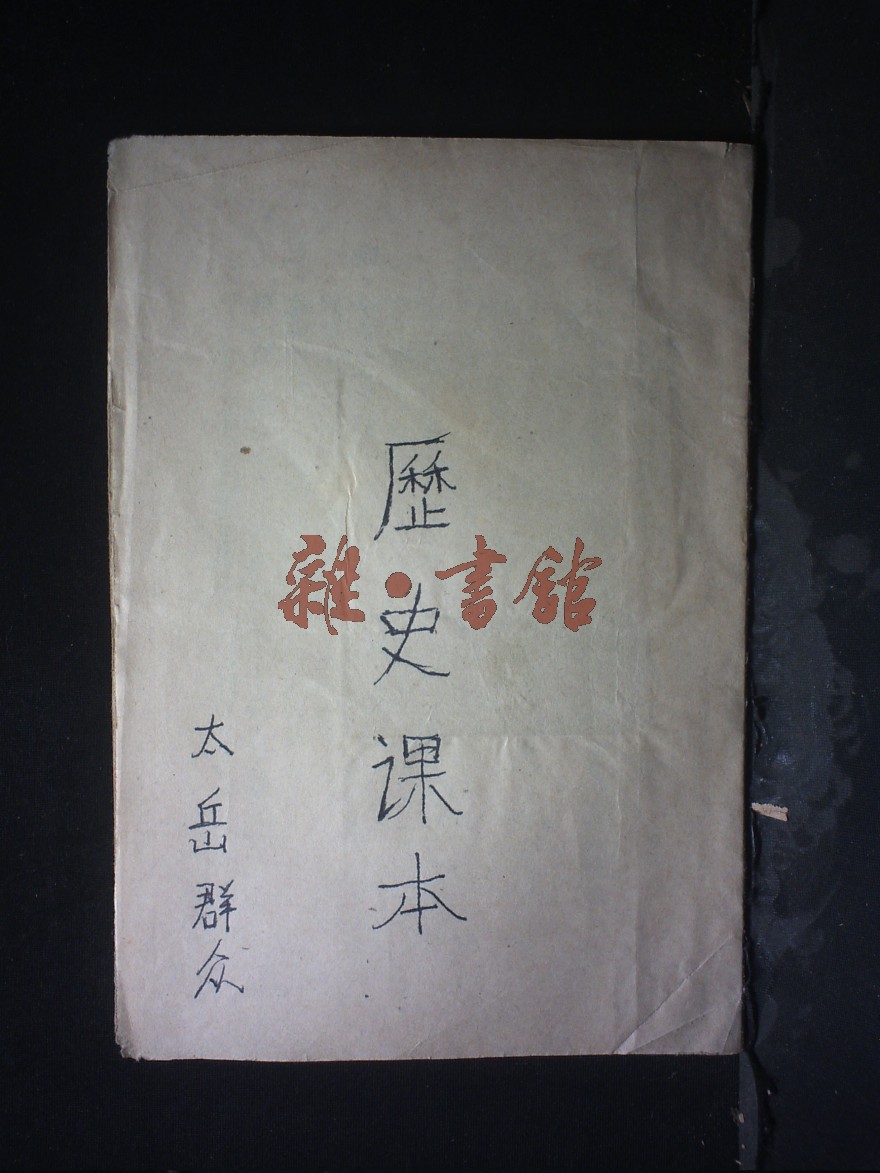 歷史课本
太岳群众
雜·書館